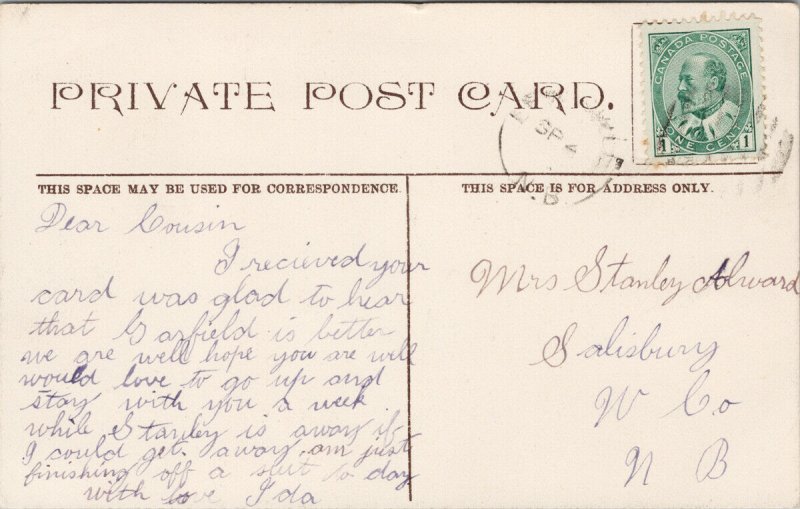 PRIVATE POST CARD.
CANADA POSTAGE
1 ONE CENT 1
SP 2
N.B.
THIS SPACE MAY BE USED FOR CORRESPONDENCE.
THIS SPACE IS FOR ADDRESS ONLY.
Dear Cousin
I recieved your
card was glad to hear
that Garfield is better
we are well hope you are well
would love to go up and
stay with you a week
while Stanley is away if
I could get away am just
finishing off a suit to day
with love Ida
Mrs Stanley Alward
Salisbury
W Co
N B